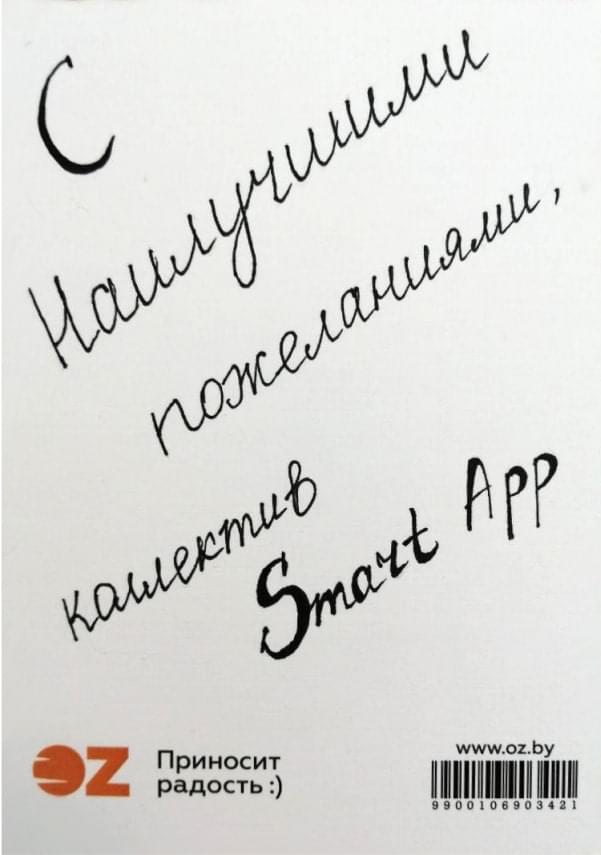 С
Наилучшими
пожеланиями,
коллектив
Smart App
OZ
Приносит
радость :)
www.oz.by
9900106903421